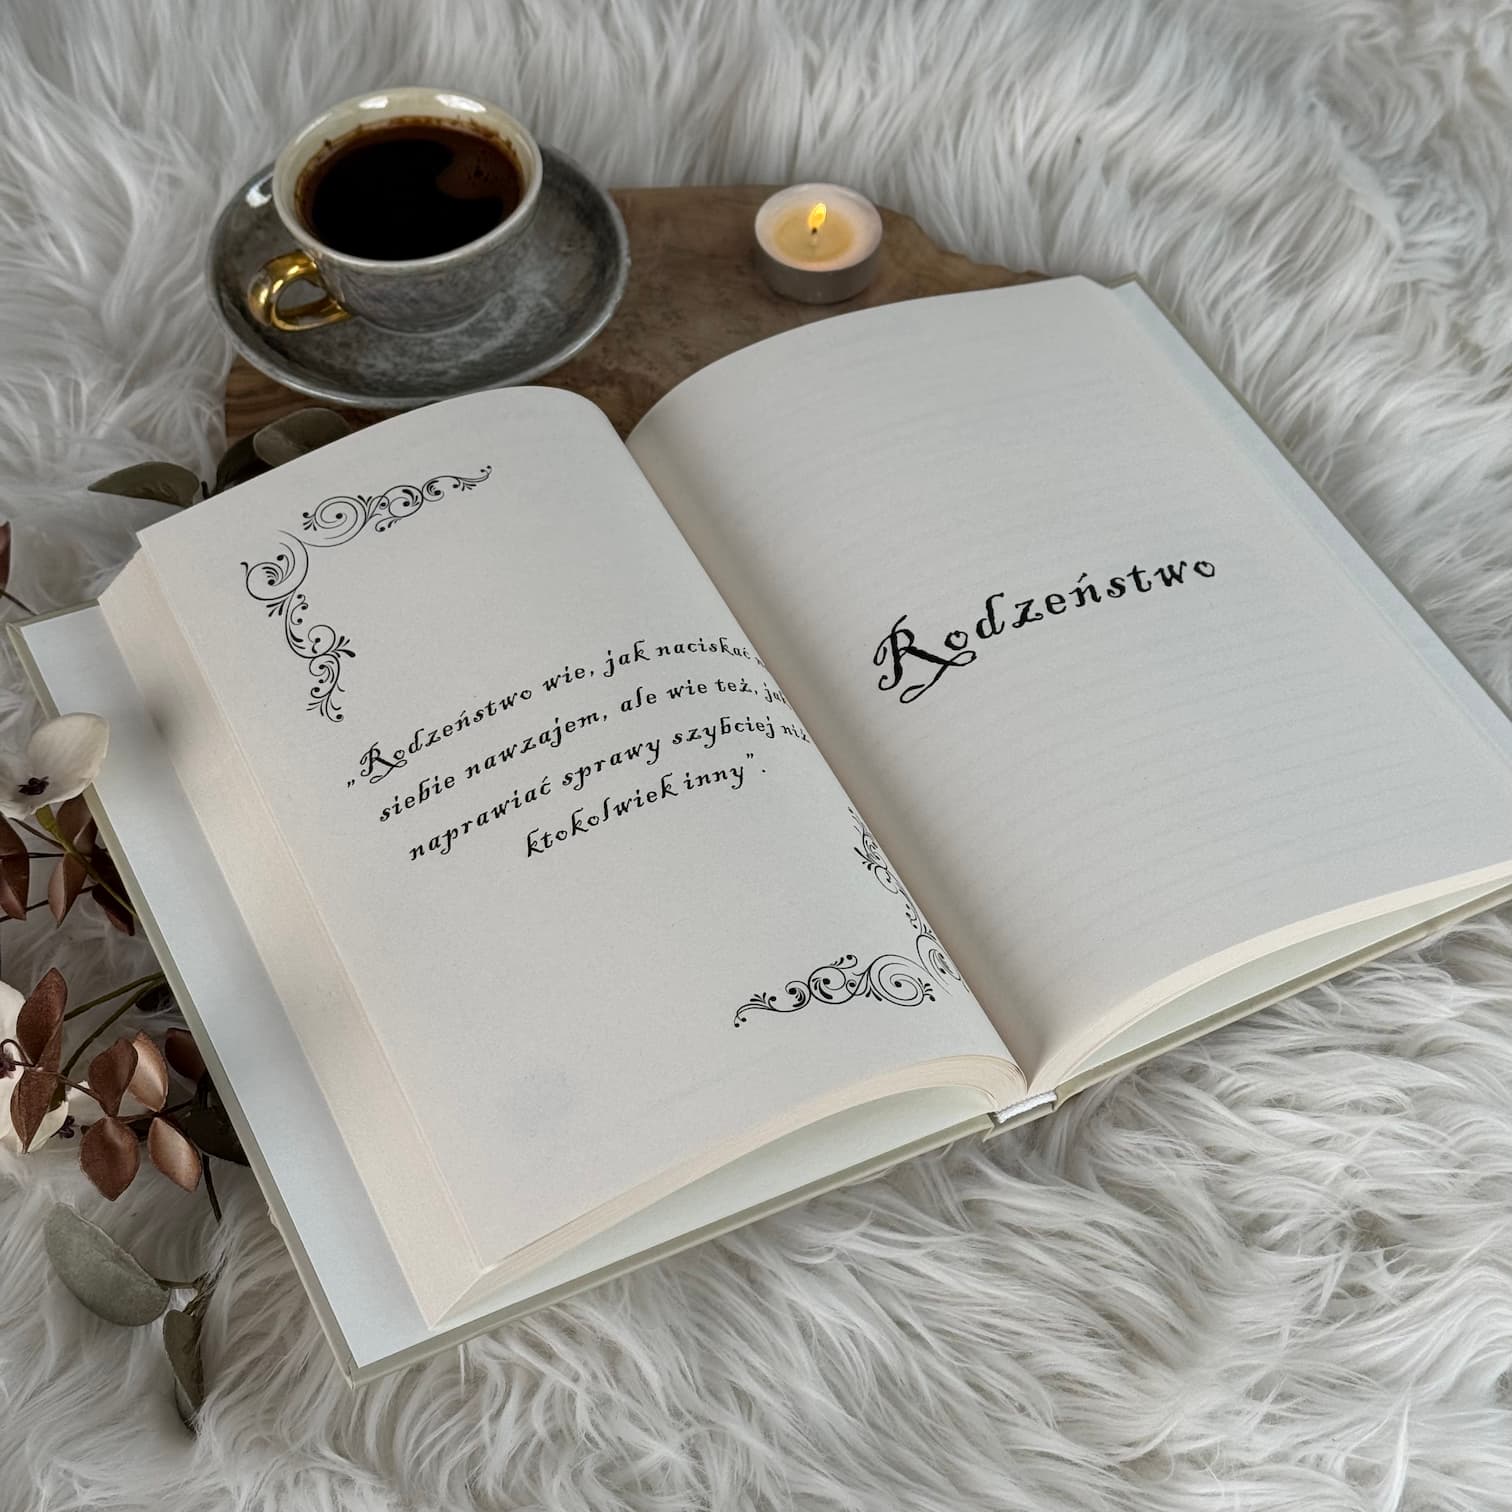 „Rodzeństwo wie, jak naciskać
siebie nawzajem, ale wie też, jak
naprawiać sprawy szybciej niż
ktokolwiek inny”.
Rodzeństwo